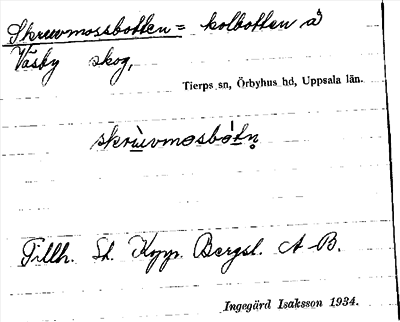 Skruvmossbotten = kolbotten å
Väsby skog,
Tierps sn, Örbyhus hd, Uppsala län.
skrùvmosbòtn̥
Tillh. St. Kopp. Bergsl. A-B.
Ingegärd Isaksson 1934.